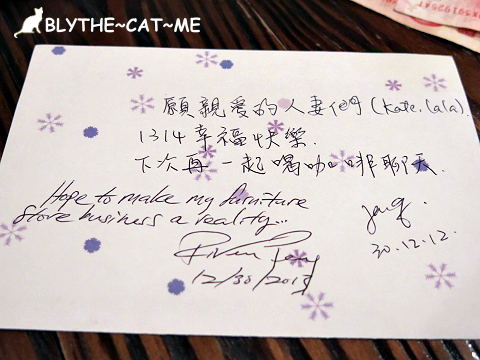 BLYTHE~CAT~ME
願親愛的人妻們(Kate.Lala)
1314幸福快樂.
下次再一起喝咖啡聊天.
Hope to make my furniture
store business a reality...
30.12.12.
12/30/2013